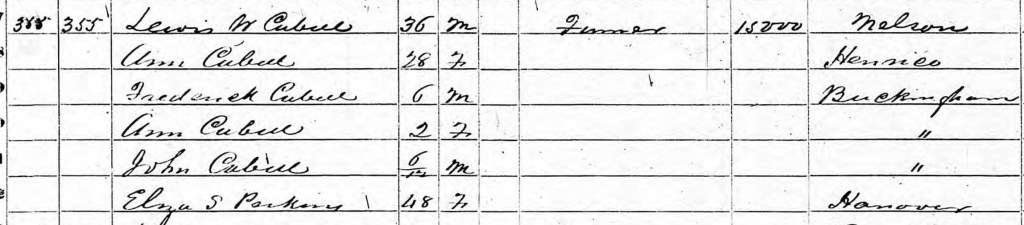 355 355 Lewis W Cabell 36 M Farmer 15000 Nelson
Ann Cabell 28 F Henrico
Frederick Cabell 6 M Buckingham
Ann Cabell 2 F "
John Cabell 6/12 M "
Eliza S Perkins 48 F Hanover